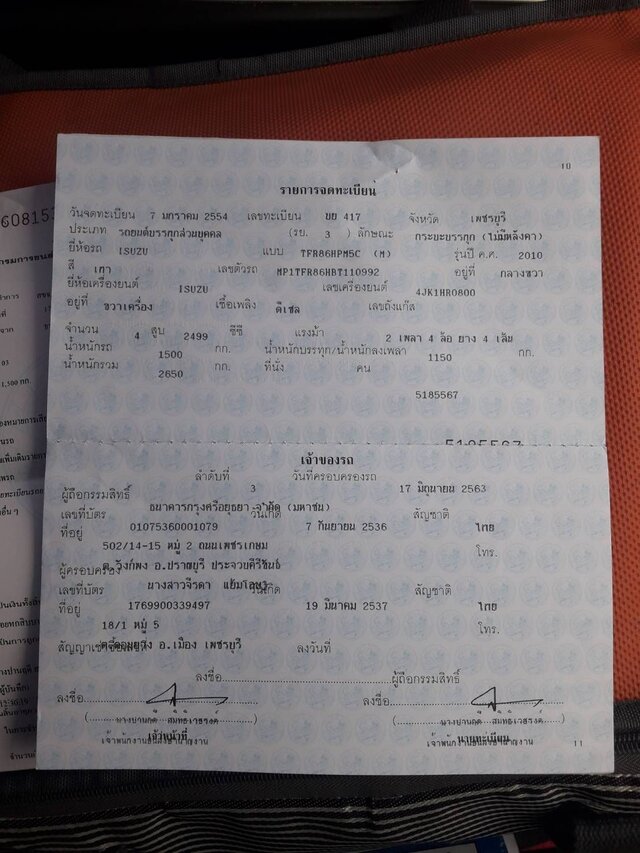 10
รายการจดทะเบียน
วันจดทะเบียน 7 มกราคม 2554 เลขทะเบียน บย 417 จังหวัด เพชรบุรี
ประเภท รถยนต์บรรทุกส่วนบุคคล (รย. 3 ) ลักษณะ กระบะบรรทุก (ไม่มีหลังคา)
ยี่ห้อรถ ISUZU แบบ TFR86HPM5C (M) รุ่นปี ค.ศ. 2010
สี เทา เลขตัวรถ MP1TFR86HBT110992 อยู่ที่ กลางขวา
ยี่ห้อเครื่องยนต์ ISUZU เลขเครื่องยนต์ 4JK1HR0800
อยู่ที่ ขวาเครื่อง เชื้อเพลิง ดีเซล เลขถังแก๊ส
จำนวน 4 สูบ 2499 ซีซี แรงม้า 2 เพลา 4 ล้อ ยาง 4 เส้น
น้ำหนักรถ 1500 กก. น้ำหนักบรรทุก/น้ำหนักลงเพลา 1150 กก.
น้ำหนักรวม 2650 กก. ที่นั่ง คน
5185567
5185567
เจ้าของรถ
ลำดับที่ 3 วันที่ครอบครองรถ 17 มิถุนายน 2563
ผู้ถือกรรมสิทธิ์ ธนาคารกรุงศรีอยุธยา จำกัด (มหาชน)
เลขที่บัตร 01075360001079 วันเกิด 7 กันยายน 2536 สัญชาติ ไทย
ที่อยู่ 502/14-15 หมู่ 2 ถนนเพชรเกษม โทร.
ต.วังก์พง อ.ปราณบุรี ประจวบคีรีขันธ์
ผู้ครอบครอง นางสาวจีรดา
เลขที่บัตร 1769900339497 วันเกิด 19 มีนาคม 2537 สัญชาติ ไทย
ที่อยู่ 18/1 หมู่ 5 โทร.
อ.เมือง เพชรบุรี
ลงวันที่
ลงชื่อ ผู้ถือกรรมสิทธิ์
ลงชื่อ ลงชื่อ
เจ้าหน้าที่ นายทะเบียน
11